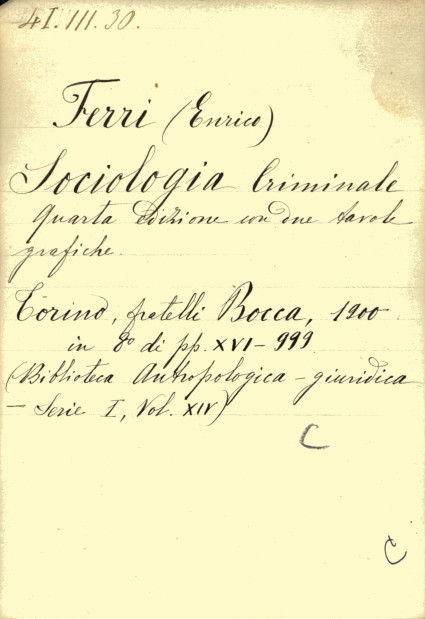 41.III.30.
Ferri (Enrico)
Sociologia Criminale
Quarta Edizione con due tavole
grafiche.
Torino, fratelli Bocca, 1900.
in 8º di pp. XVI-999.
(Biblioteca Antropologica-giuridica
- Serie I, Vol. XIV)
C
C